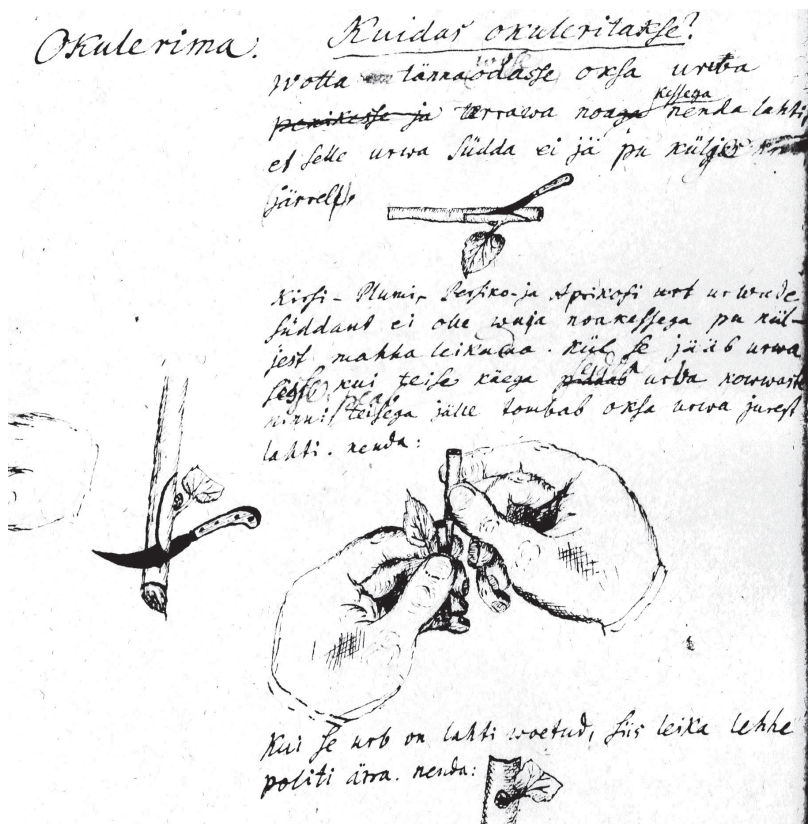 Okulerima.
Kuidas okuleritakse?
Wotta tännaödasse oksa urba
perikesse ja terrawa noaga kessega nenda lahti,
et selle urwa südda ei jä pu külje
järrel.
Kirsi- Plumi, Persiko- ja Aprikosi urwude
süddant ei olle waja noakessega pu kül-
jest mahha leikada. Kül se jääb urwa
sisse kui teise käega urba kowwaste
ninni teisega jälle tombab oksa urwa jurest
lahti. nenda:
Kui se urb on lahti woetud, siis leika lehhe
politi ärra. nenda: